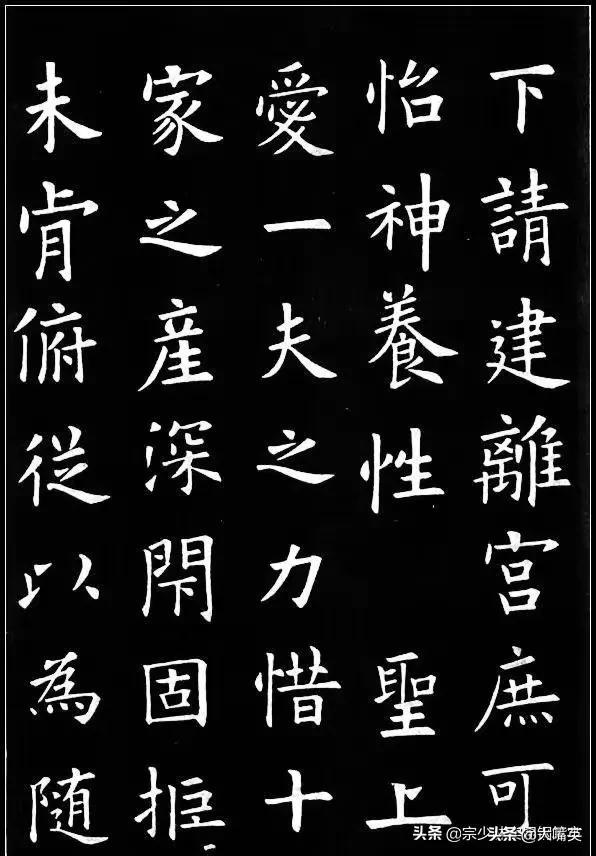 下請建離宮庶可
怡神養性 聖上
愛一夫之力惜十
家之産深閇固拒
未肯俯從以為隨
头条 @宗少
头条 @大嘴英